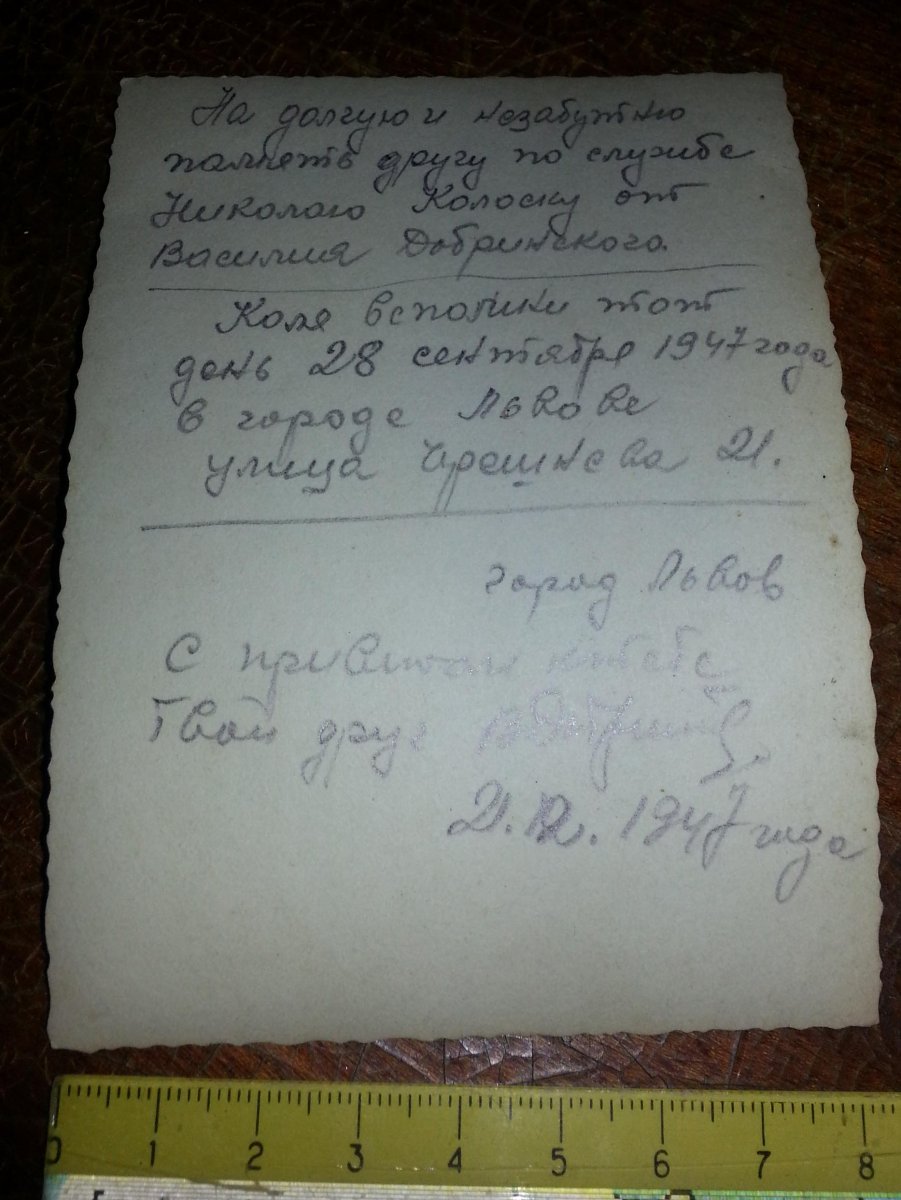 На долгую и незабутню
память другу по службе
Николаю Колоску от
Василия Добринского.
Коля вспомни тот
день 28 сентября 1947 года
в городе Львове
улица 21.
город Львов
С приветом к тебе
Твой друг
21.12.1947 года
0 1 2 3 4 5 6 7 8